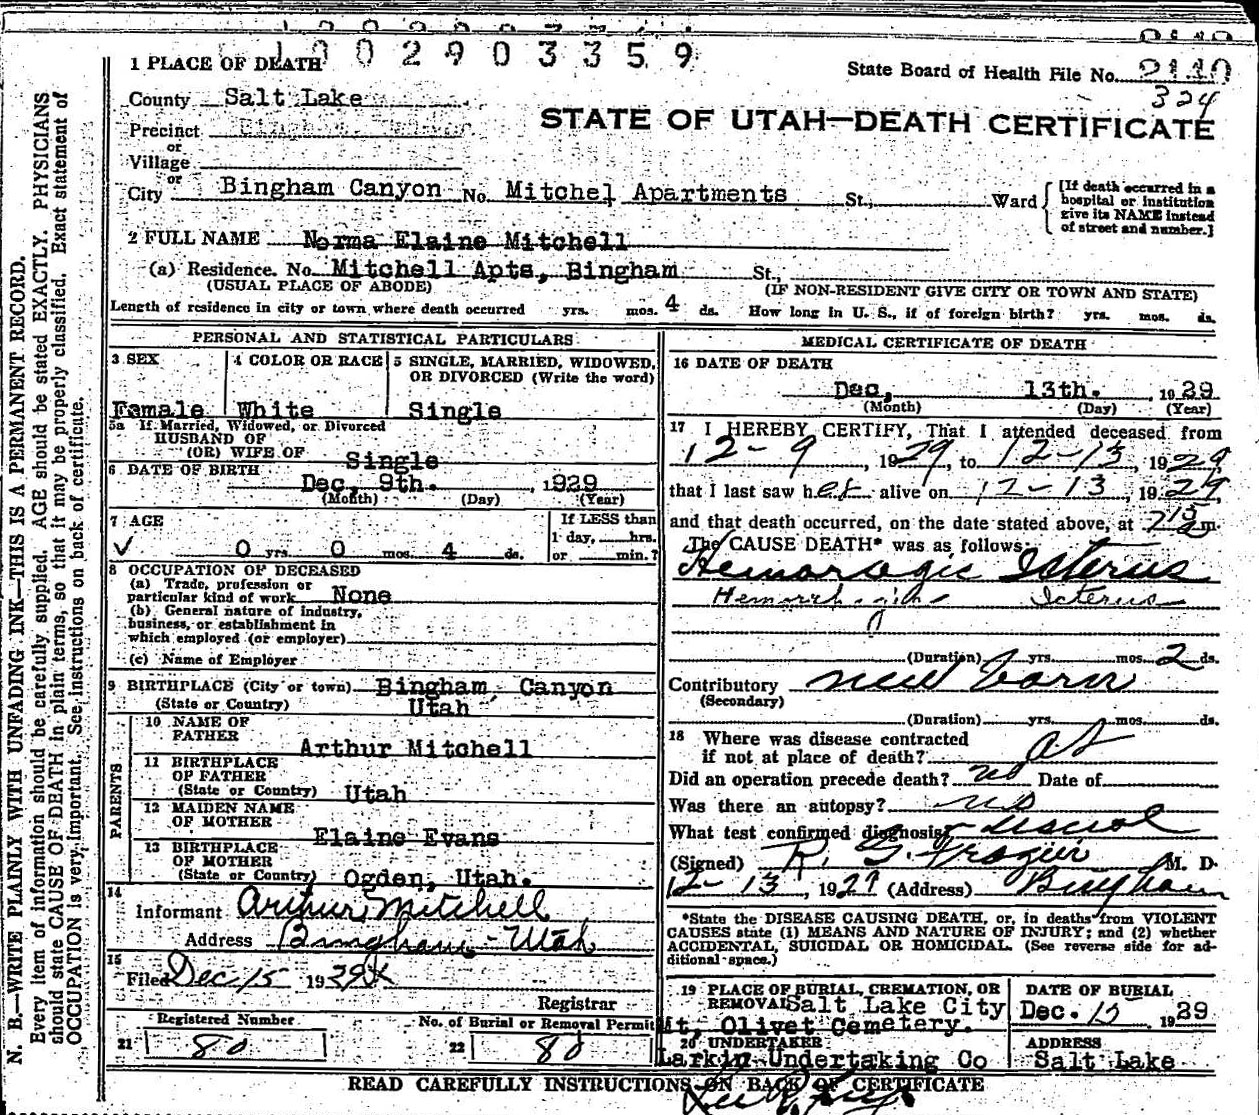 1 0 0 2 9 0 3 3 5 9
1 PLACE OF DEATH
State Board of Health File No. 2140
324
County Salt Lake
STATE OF UTAH—DEATH CERTIFICATE
Precinct
or
Village
or
City Bingham Canyon No. Mitchel Apartments St., Ward
[If death occurred in a hospital or institution give its NAME instead of street and number.]
2 FULL NAME Norma Elaine Mitchell
(a) Residence. No. Mitchell Apts, Bingham St.,
(USUAL PLACE OF ABODE) (IF NON-RESIDENT GIVE CITY OR TOWN AND STATE)
Length of residence in city or town where death occurred yrs. mos. 4 ds. How long in U. S., if of foreign birth? yrs. mos. ds.
PERSONAL AND STATISTICAL PARTICULARS
3 SEX
Famale
4 COLOR OR RACE
White
5 SINGLE, MARRIED, WIDOWED, OR DIVORCED (Write the word)
Single
5a If Married, Widowed, or Divorced
HUSBAND OF
(OR) WIFE OF Single
6 DATE OF BIRTH
Dec, 9th. , 1929
(Month) (Day) (Year)
7 AGE
✓ 0 yrs. 0 mos. 4 ds.
If LESS than
1 day, hrs.
or min.?
8 OCCUPATION OF DECEASED
(a) Trade, profession or
particular kind of work None
(b) General nature of industry,
business, or establishment in
which employed (or employer)
(c) Name of Employer
9 BIRTHPLACE (City or town) Bingham, Canyon
(State or Country) Utah
PARENTS
10 NAME OF
FATHER
Arthur Mitchell
11 BIRTHPLACE
OF FATHER
(State or Country) Utah
12 MAIDEN NAME
OF MOTHER
Elaine Evans
13 BIRTHPLACE
OF MOTHER
(State or Country) Ogden, Utah.
14
Informant Arthur Mitchell
Address Bingham - Utah
15
Filed Dec 15 1929
Registrar
Registered Number
21 80
No. of Burial or Removal Permit
22 80
MEDICAL CERTIFICATE OF DEATH
16 DATE OF DEATH
Dec, 13th. 1929
(Month) (Day) (Year)
17 I HEREBY CERTIFY, That I attended deceased from
12-9, 1929, to 12-13, 1929
that I last saw her alive on 12-13, 1929
and that death occurred, on the date stated above, at 7 15 a m.
The CAUSE DEATH* was as follows:
Hemoragic Icterus
Icterus
(Duration) yrs. mos. 2 ds.
Contributory new born
(Secondary)
(Duration) yrs. mos. ds.
18 Where was disease contracted
if not at place of death? at
Did an operation precede death? no Date of
Was there an autopsy? no
What test confirmed diagnosis?
(Signed) R. G. Frazier M. D.
12-13, 1929 (Address) Bingham
*State the DISEASE CAUSING DEATH, or, in deaths from VIOLENT
CAUSES state (1) MEANS AND NATURE OF INJURY; and (2) whether
ACCIDENTAL, SUICIDAL OR HOMICIDAL. (See reverse side for ad-
ditional space.)
19 PLACE OF BURIAL, CREMATION, OR
REMOVAL Salt Lake City
Mt, Olivet Cemetery.
DATE OF BURIAL
Dec. 15 1929
20 UNDERTAKER
Larkin Undertaking Co
ADDRESS
Salt Lake
READ CAREFULLY INSTRUCTIONS ON BACK OF CERTIFICATE
N. B.—WRITE PLAINLY WITH UNFADING INK—THIS IS A PERMANENT RECORD.
Every item of information should be carefully supplied. AGE should be stated EXACTLY. PHYSICIANS
should state CAUSE OF DEATH in plain terms, so that it may be properly classified. Exact statement of
OCCUPATION is very important. See instructions on back of certificate.